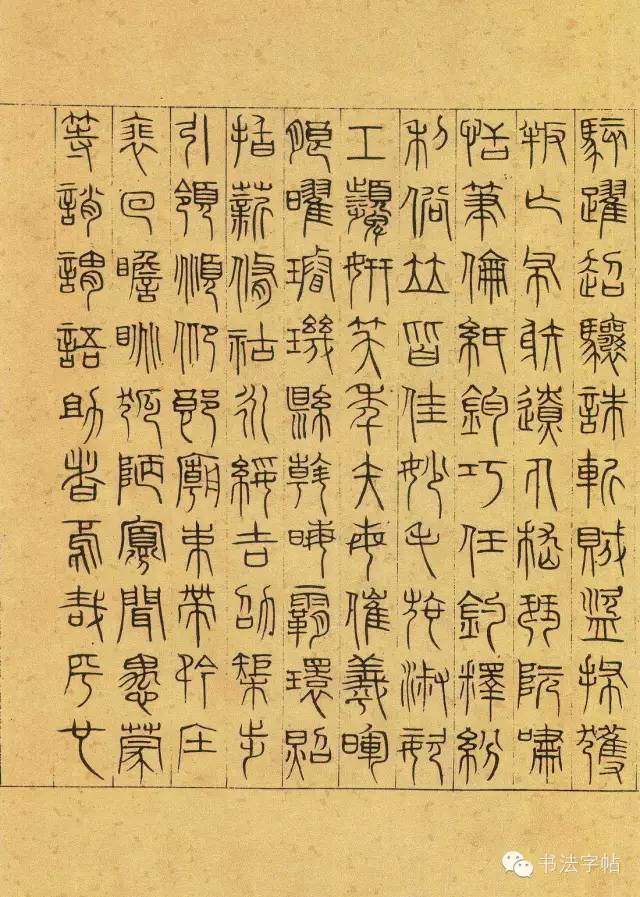 駭躍超驤誅斬賊盜捕獲
叛亡布射遼丸嵇琴阮嘯
恬筆倫紙鈞巧任釣釋紛
利俗竝皆佳妙毛施淑姿
工顰妍笑年矢每催羲暉
朗曜璿璣縣斡晦霸環照
指薪脩祜永綏吉劭榘步
引領俯仰郎廟束帶矜莊
裵回瞻眺孤陋寡聞愚蒙
等誚謂語助者焉哉乎也
书法字帖